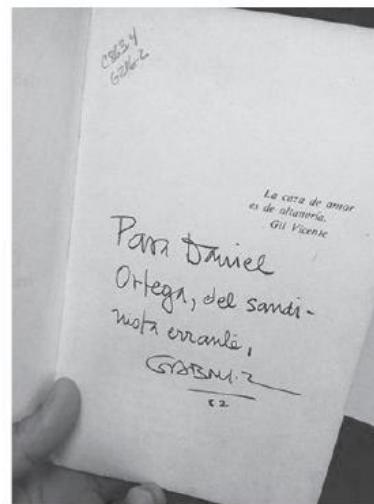 C863.4
G216-2
La caza de amor
es de altanería.
Gil Vicente
Para Daniel
Ortega, del sandi-
nista errante,
GABRIEL
82